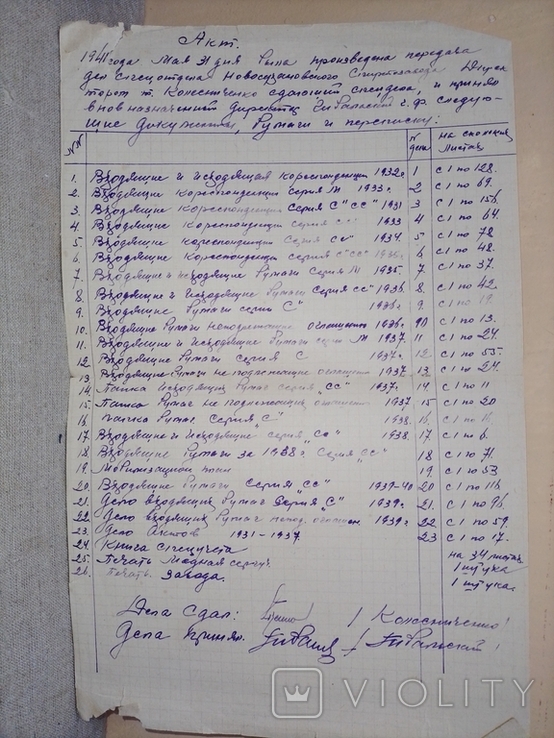 Акт.
1941 года Мая 31 дня была произведена передача
дел спецотдела Новосурановского Спиртзавода Дирек
торот т. Колесниченко сдающий спецдела, и принял
вновь назначенный директор Гибальский следую-
щие документы, бумаги и переписку:
№№ № дела на скольких листах
1. Входящие и исходящая кореспонденция 1932г. 1 с 1 по 128.
2. Входящие кореспонденция серия М 1933г. 2 с 1 по 69.
3. Входящие кореспонденция Серия С "сс" 1931 3 с 1 по 156
4. Входящие Кореспонденция серия 1933 4 с 1 по 64.
5. Входящие кореспонденция Серия 1934. 5 с 1 по 78
6. Входящие Кореспонденция серия "сс" 6 с 1 по 48.
7. Входящие и исходящие бумаги Серия М 1935. 7 с 1 по 37.
8. Входящие и Исходящие бумаги Серия сс 1936 8 с 1 по 42.
9. Входящие бумаги серии С 1936г. 9 с 1 по 19.
10. Входящие бумаги 1936г. 10 с 1 по 13.
11. Входящие и Исходящие бумаги серии М 1937. 11 с 1 по 24.
12. Входящие бумаги серия С 1937г. 12 с 1 по 53.
13. Входящие бумаги не подлежащие оглашению 1937 13 с 1 по 24.
14. Папка исходящих бумаг серия "сс" 1937г. 14 с 1 по 11
15. Папка бумаг не подлежащих оглашению 1937 15 с 1 по 20
16. Папка бумаг, Серия "С" 1938. 16. с 1 по 11.
17. Входящие и исходящие серия "сс" 1938. 17 с 1 по 6.
18. Входящие бумаги за 1938г. Серия "СС" 18 с 1 по 71.
19. Мобилизацион 19. с 1 по 53
20. Входящие бумаги Серия "сс" 1939-40 20 с 1 по 116
21. Дело входящих бумаг Серия "С" 1939г. 21. с 1 по 96.
22. Дело входящих бумаг оглашен 1939г 22 с 1 по 59.
23. Дело Актов 1931-1937. 23 с 1 по 17.
24. Книга Спецучета на 34 листах
25. Печать Медная 1 штука
26. Печать Завода. 1 штука.
Дела сдал: / Колесниченко /
Дела принял. / Гибальский /
VIOLITY